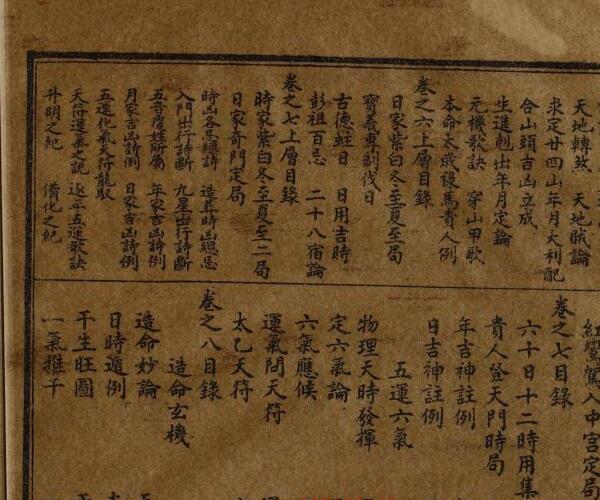 天地轉煞　天地賊論
求定廿四山年月大利配
合山頭吉凶立成
生造剋出年月定論
元機歌訣　穿山甲歌
本命太歲祿馬貴人例
卷之六上層目錄
日家紫白冬至夏至局
寶義專制伐日
古德蛀日　日用吉時
彭祖百忌　二十八宿論
卷之七上層目錄
時家紫白冬至夏至二局
日家奇門定局
時凶各忌總詩　造葬時凶總忌
入門出行詩斷　九星出行詩斷
五音屬姓所屬　年家吉凶詩例
月家吉凶詩例　日家吉凶詩例
五運化氣天符龍馭
天符運氣之說　逐年五運歌訣
升明之紀　備化之紀
紅鸞駕入中宮定局
卷之七目錄
六十日十二時用集
貴人登天門時局
年吉神註例
日吉神註例
五運六氣
物理天時發揮
定六氣論
六氣應候
運氣問天符
太乙天符
卷之八目錄
造命玄機
造命妙論
日時遁例
干生旺圖
一氣推干